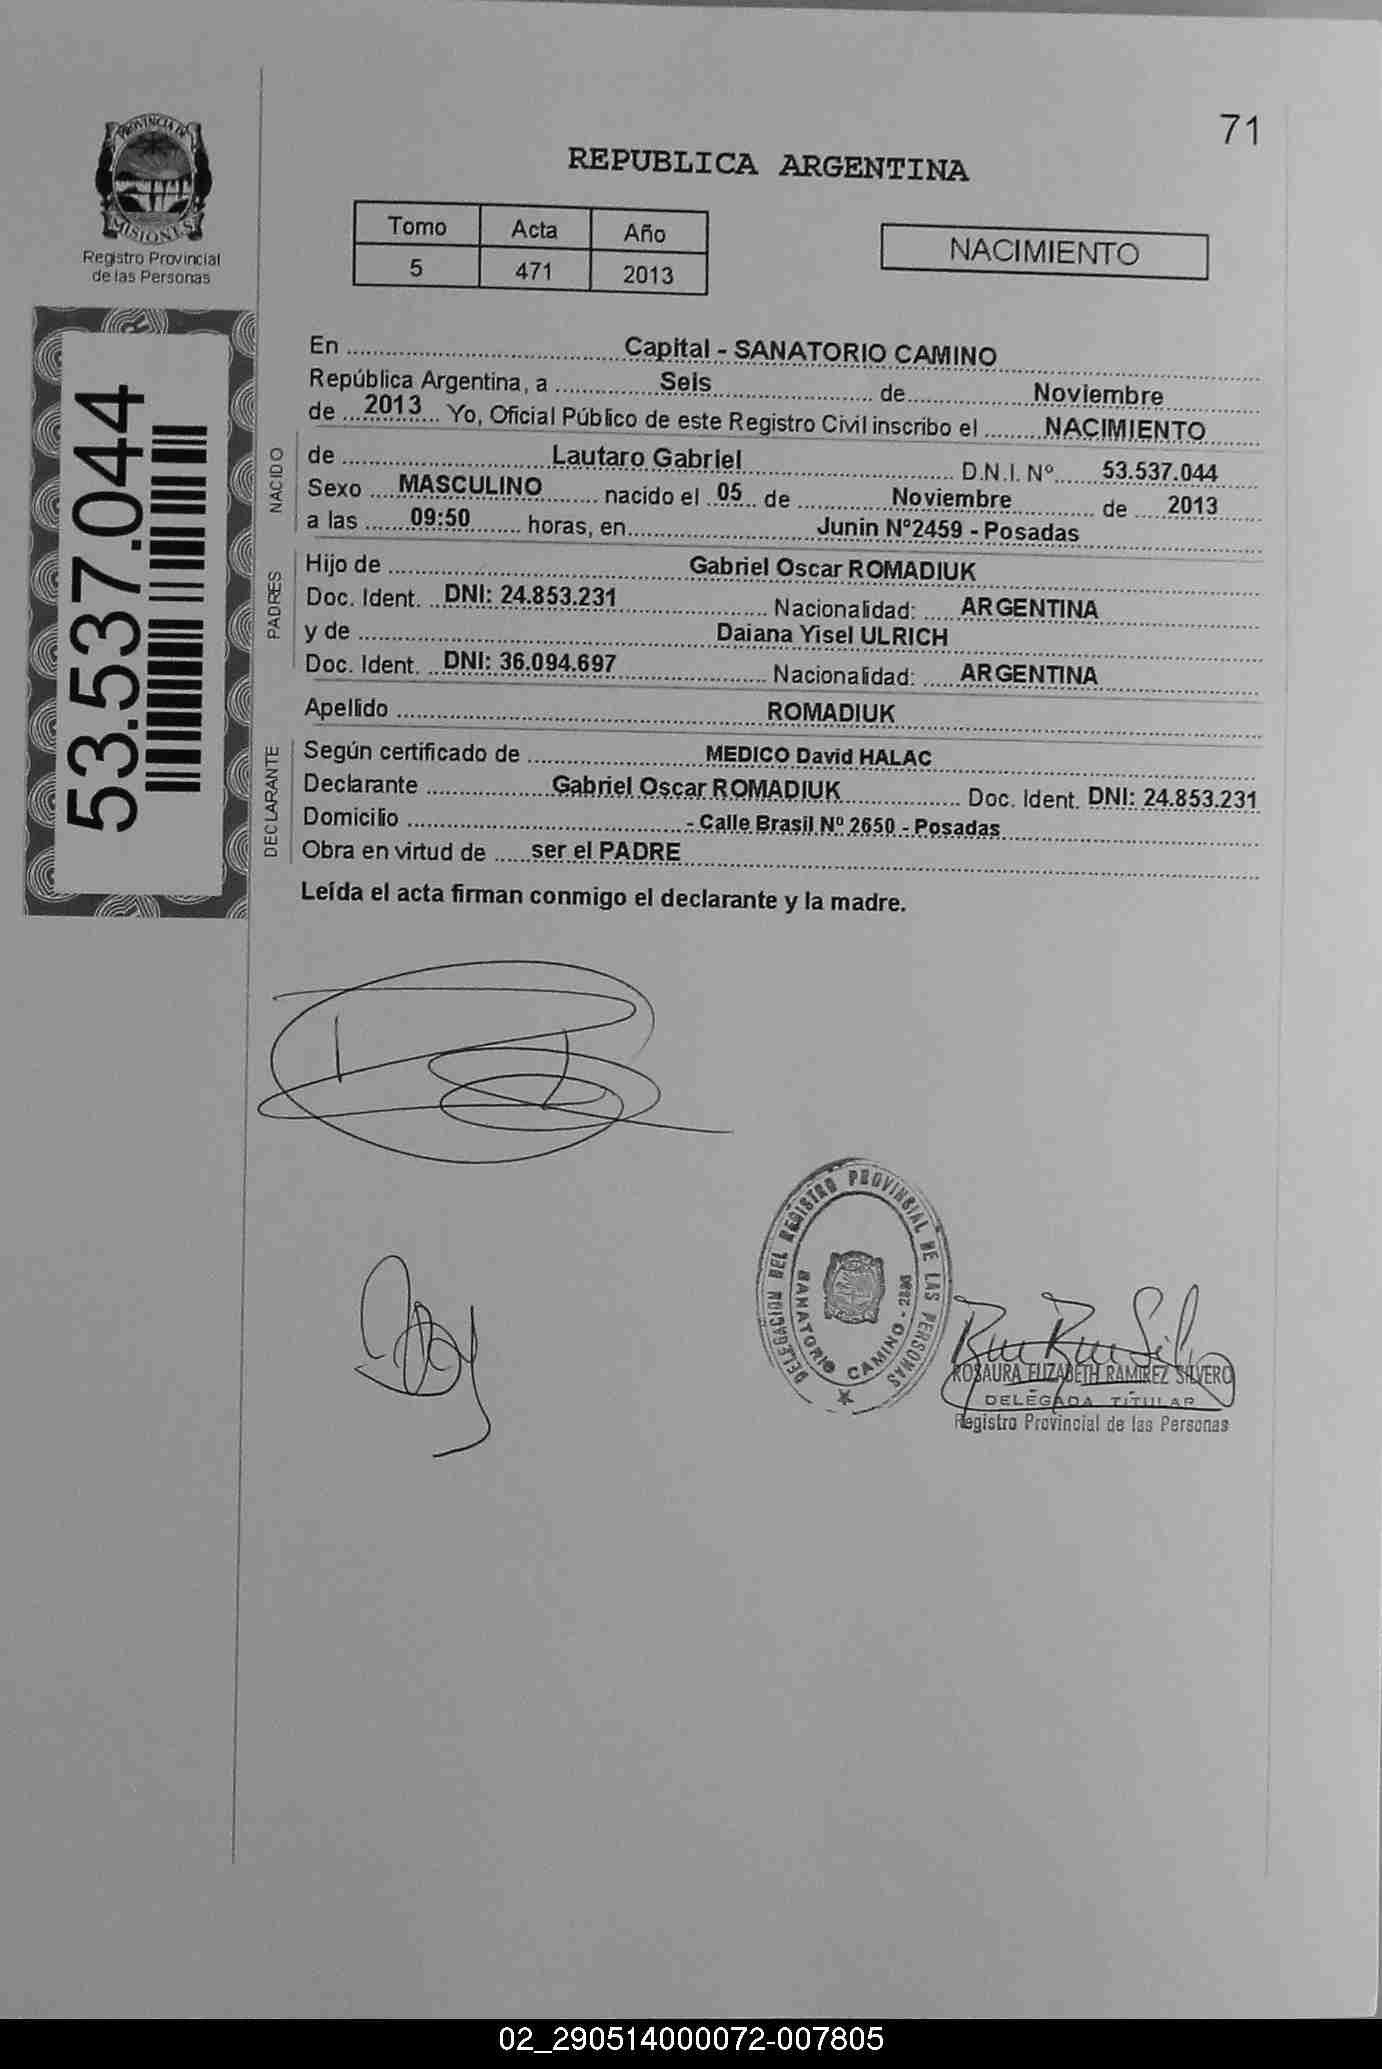 71
REPUBLICA ARGENTINA
PROVINCIA DE
MISIONES
Registro Provincial
de las Personas
Tomo Acta Año
5 471 2013
NACIMIENTO
53.537.044
En Capital - SANATORIO CAMINO
República Argentina, a Seis de Noviembre
de 2013 Yo, Oficial Público de este Registro Civil inscribo el NACIMIENTO
NACIDO
de Lautaro Gabriel D.N.I. Nº 53.537.044
Sexo MASCULINO nacido el 05 de Noviembre de 2013
a las 09:50 horas, en Junin Nº2459 - Posadas
PADRES
Hijo de Gabriel Oscar ROMADIUK
Doc. Ident. DNI: 24.853.231 Nacionalidad: ARGENTINA
y de Daiana Yisel ULRICH
Doc. Ident. DNI: 36.094.697 Nacionalidad: ARGENTINA
Apellido ROMADIUK
DECLARANTE
Según certificado de MEDICO David HALAC
Declarante Gabriel Oscar ROMADIUK Doc. Ident. DNI: 24.853.231
Domicilio - Calle Brasil Nº 2650 - Posadas
Obra en virtud de ser el PADRE
Leída el acta firman conmigo el declarante y la madre.
DELEGACION DEL REGISTRO PROVINCIAL DE LAS PERSONAS
SANATORIO CAMINO -
ROSAURA ELIZABETH RAMIREZ SILVERO
DELEGADA TITULAR
Registro Provincial de las Personas
02_290514000072-007805